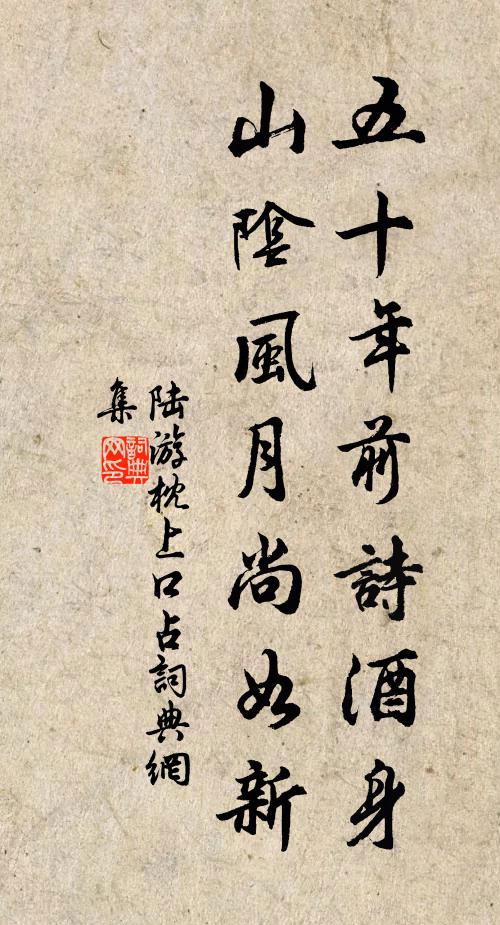 五十年前詩酒身
山陰風月尚如新
陸游枕上口占詞典網
集
詞典
网印